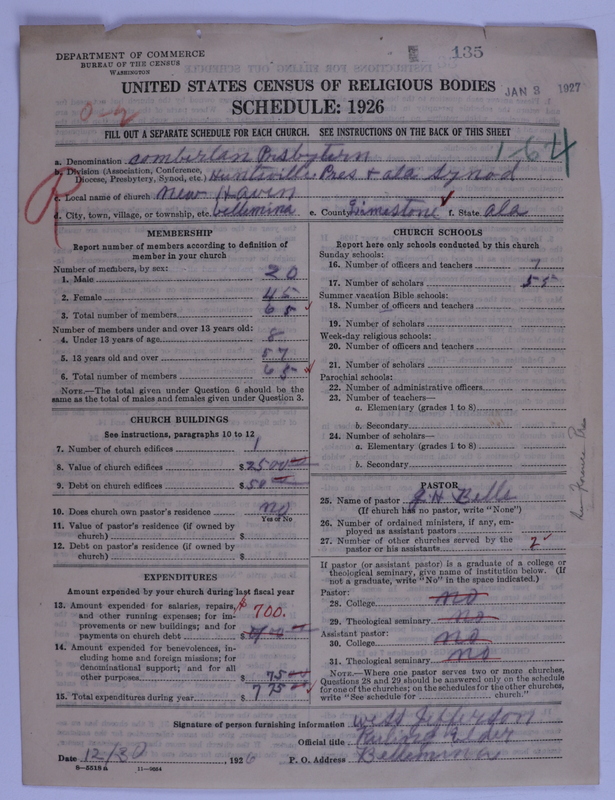 135
DEPARTMENT OF COMMERCE
BUREAU OF THE CENSUS
WASHINGTON
UNITED STATES CENSUS OF RELIGIOUS BODIES
JAN 3 1927
SCHEDULE: 1926
FILL OUT A SEPARATE SCHEDULE FOR EACH CHURCH. SEE INSTRUCTIONS ON THE BACK OF THIS SHEET
1-64
a. Denomination Comberlan Presbytern
b. Division (Association, Conference, Diocese, Presbytery, Synod, etc.) Huntsville Pres + ala Synod
c. Local name of church New Haven
d. City, town, village, or township, etc. bellmina e. County Limestone f. State ala
MEMBERSHIP
Report number of members according to definition of
member in your church
Number of members, by sex:
1. Male 20
2. Female 45
3. Total number of members 65
Number of members under and over 13 years old:
4. Under 13 years of age 8
5. 13 years old and over 57
6. Total number of members 65
NOTE.—The total given under Question 6 should be
same as the total of males and females given under Question 3.
CHURCH BUILDINGS
See instructions, paragraphs 10 to 12
7. Number of church edifices 1
8. Value of church edifices $2500
9. Debt on church edifices $50
10. Does church own pastor's residence no
Yes or No
11. Value of pastor's residence (if owned by
church) $
12. Debt on pastor's residence (if owned by
church) $
EXPENDITURES
Amount expended by your church during last fiscal year
13. Amount expended for salaries, repairs, $700.
and other running expenses; for im-
provements or new buildings; and for
payments on church debt $
14. Amount expended for benevolences, in-
cluding home and foreign missions; for
denominational support; and for all
other purposes $75
15. Total expenditures during year $775
CHURCH SCHOOLS
Report here only schools conducted by this church
Sunday schools:
16. Number of officers and teachers 7
17. Number of scholars 55
Summer vacation Bible schools:
18. Number of officers and teachers
19. Number of scholars
Week-day religious schools:
20. Number of officers and teachers
21. Number of scholars
Parochial schools:
22. Number of administrative officers
23. Number of teachers—
a. Elementary (grades 1 to 8)
b. Secondary
24. Number of scholars—
a. Elementary (grades 1 to 8)
b. Secondary
PASTOR
25. Name of pastor J. H. Belle
(If church has no pastor, write "None")
26. Number of ordained ministers, if any, em-
ployed as assistant pastors
27. Number of other churches served by the
pastor or his assistants 2
If pastor (or assistant pastor) is a graduate of a college or
theological seminary, give name of institution below. (If
not a graduate, write "No" in the space indicated.)
Pastor:
28. College no
29. Theological seminary no
Assistant pastor:
30. College no
31. Theological seminary no
NOTE.—Where one pastor serves two or more churches,
Questions 28 and 29 should be answered only on the schedule
for one of the churches; on the schedules for the other churches,
write "See schedule for church."
Signature of person furnishing information Wess Jefferson
Official title Ruling Elder
Date 12/30, 1926 P. O. Address Bellemina
8—5518 a 11—9664